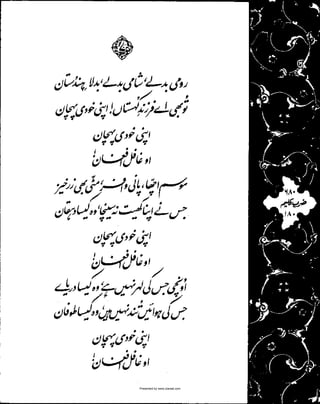 رومی بدلے، شامی بدلے، بدلا ہندستان
تو بھی اے فرزندِ کہستاں! اپنی خودی پہچان
اپنی خودی پہچان
او غافل افغان!
موسم اچھا، پانی وافر، مٹی بھی زرخیز
جس نے اپنا کھیت نہ سینچا، وہ کیسا دہقان
اپنی خودی پہچان
او غافل افغان!
اونچی جس کی لہر نہیں ہے، وہ کیسا دریائے
جس کی ہوائیں تند نہیں ہیں، وہ کیسا طوفان
اپنی خودی پہچان
او غافل افغان!
۶۸۰
ضربِ کلیم
۱۸۰
Presented by www.ziaraat.com